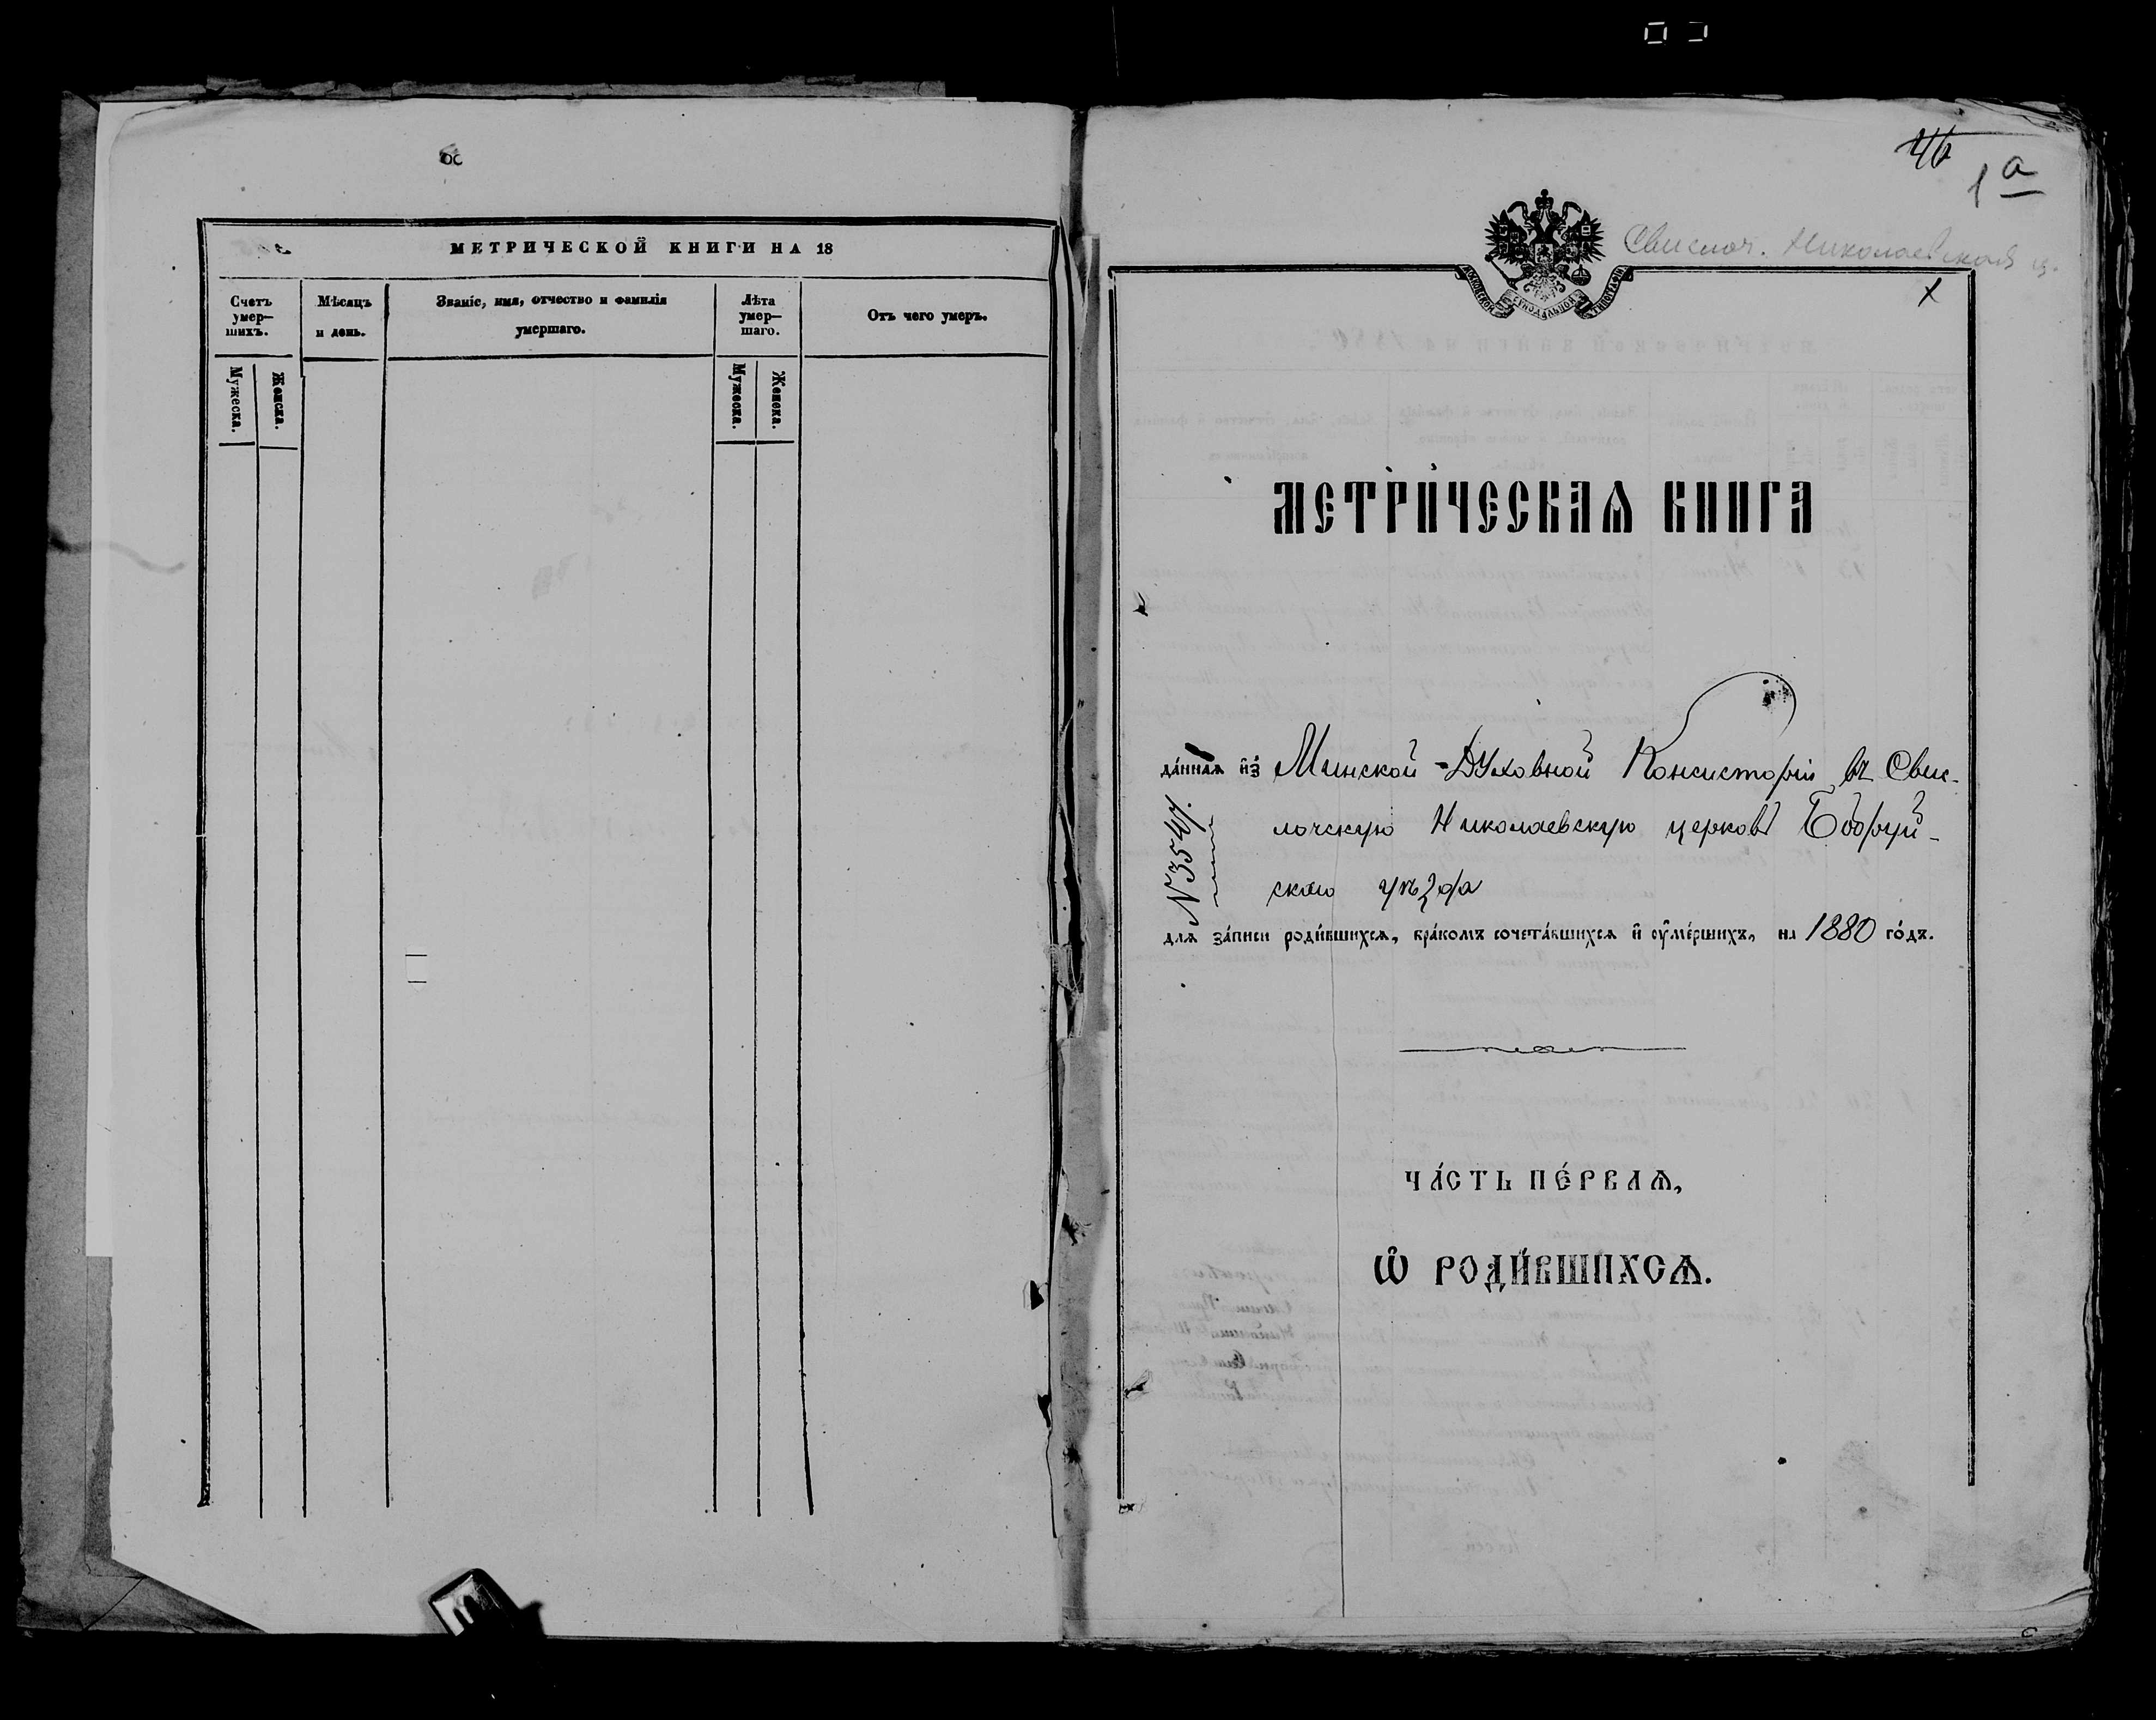 МЕТРИЧЕСКОЙ КНИГИ НА 18
Счетъ умер—шихъ.
Мѣсяцъ и день.
Званіе, имя, отчество и фамилія умершаго.
Лѣта умер—шаго.
Отъ чего умеръ.
Мужеска.
Женска.
Мужеска.
Женска.
46
1 а
Свислоч. Николаевская ц.
МОСКОВСКОЙ СѴНОДАЛЬНОЙ ТИПОГРАФІИ
х
МЕТРИ́ЧЕСКАѦ КНИГА
да́ннаѧ и҆з̾ Минской Духовной Консисторіи въ Свис-
лочскую Николаевскую церковь Бобруй-
скаго уѣзда
№ 3547.
длѧ за́писи роди́вшихсѧ, бра́комъ сочета́вшихсѧ и҆ ᲂу҆ме́ршихъ, на 1880 го́дъ.
ЧА́СТЬ ПЕ́РВАѦ,
Ѡ҆ РОДИ́ВШИХСѦ.